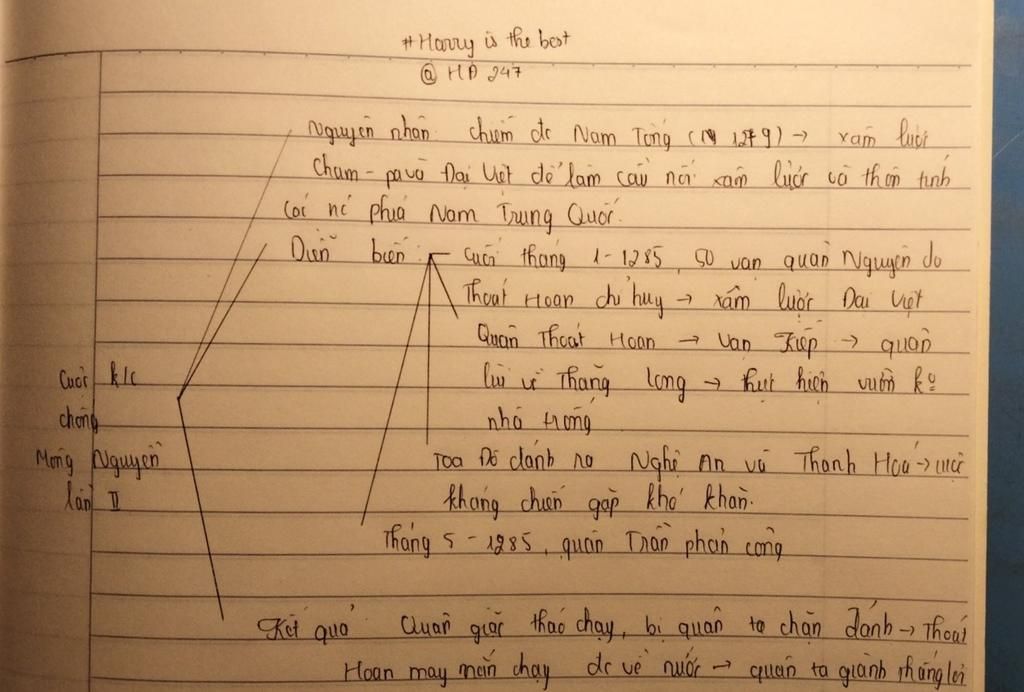 #Harry is the best
@ HD 247
Nguyên nhân: chiếm đc Nam Tống (N 1279) → xâm lược
Cham-pa và Đại Việt để làm cầu nối xâm lược và thôn tính
các nc phía Nam Trung Quốc.
Diễn biến: - Cuối tháng 1-1285, 50 vạn quân Nguyên do
Thoát Hoan chỉ huy → xâm lược Đại Việt
Quân Thoát Hoan → Vạn Kiếp → quân
Cuộc k/c lui về Thăng Long → thực hiện vườn ko
chống nhà trống
Mông Nguyên Toa Đô đánh ra Nghệ An và Thanh Hoá →
lần II kháng chiến gặp khó khăn.
Tháng 5 - 1285, quân Trần phản công
Kết quả: Quân giặc tháo chạy, bị quân ta chặn đánh → Thoát
Hoan may mắn chạy đc về nước → quân ta giành thắng lợi